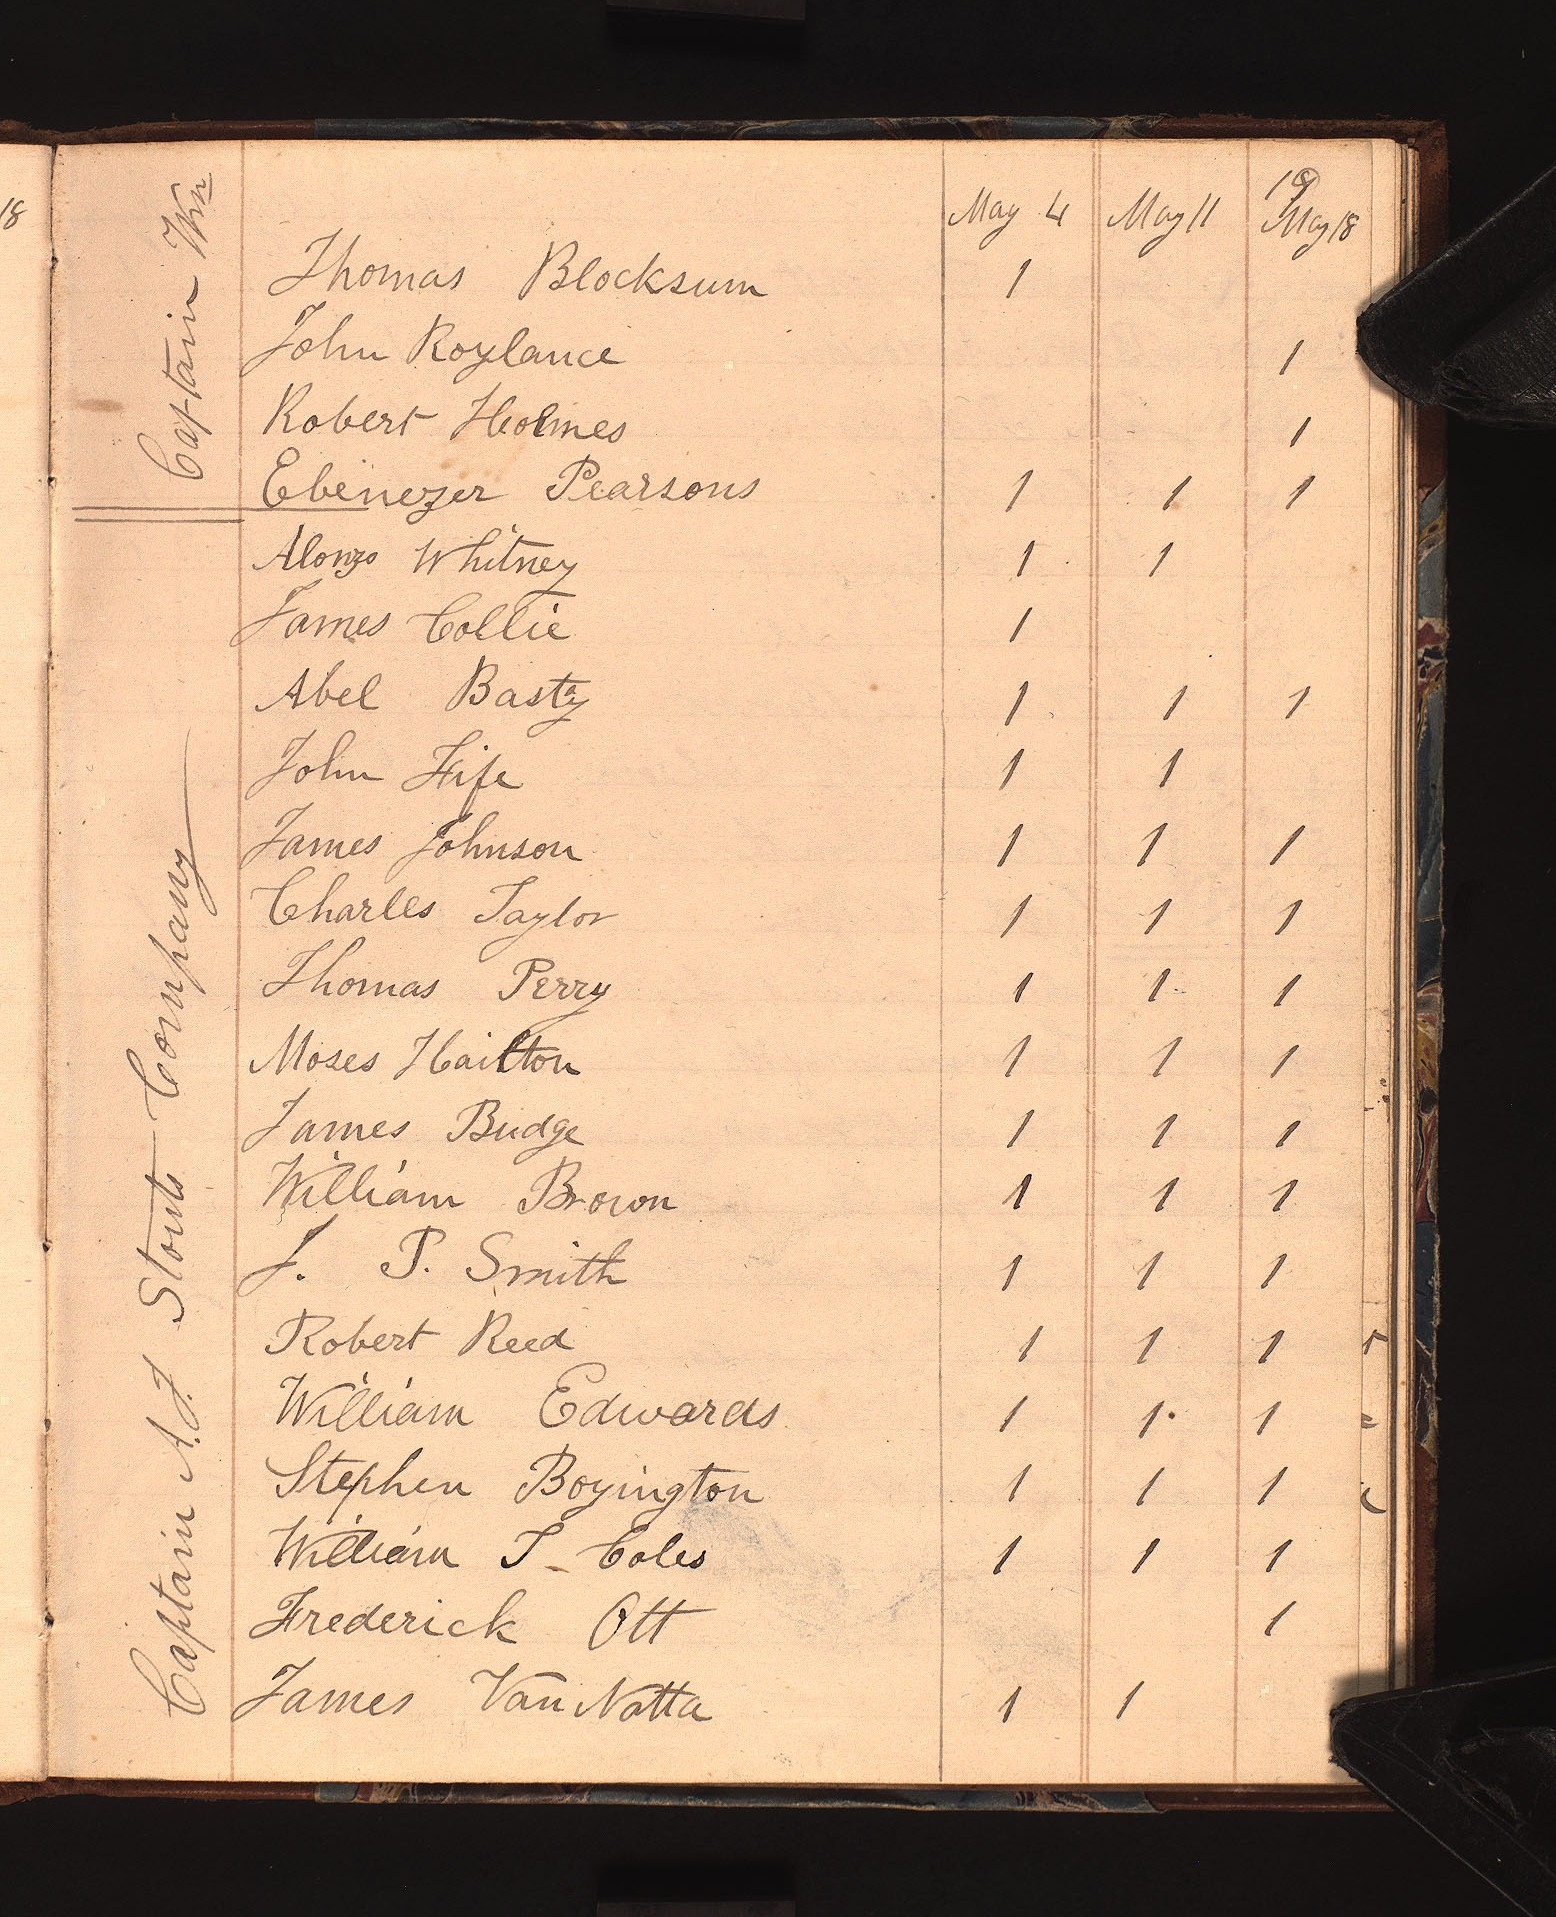 18
Captain Wm
May 4 May 11 May 18
Thomas Blocksum 1
John Roylance 1
Robert Holmes 1
Ebenezer Pearsons 1 1 1
Captain A. J. Stouts Company
Alonzo Whitney 1 1
James Collie 1
Abel Basty 1 1 1
John Fife 1 1
James Johnson 1 1 1
Charles Taylor 1 1 1
Thomas Perry 1 1 1
Moses Hailton 1 1 1
James Budge 1 1 1
William Brown 1 1 1
J. P. Smith 1 1 1
Robert Reed 1 1 1
William Edwards 1 1 1
Stephen Boyington 1 1 1
William T Coles 1 1 1
Frederick Ott 1
James Van Natta 1 1